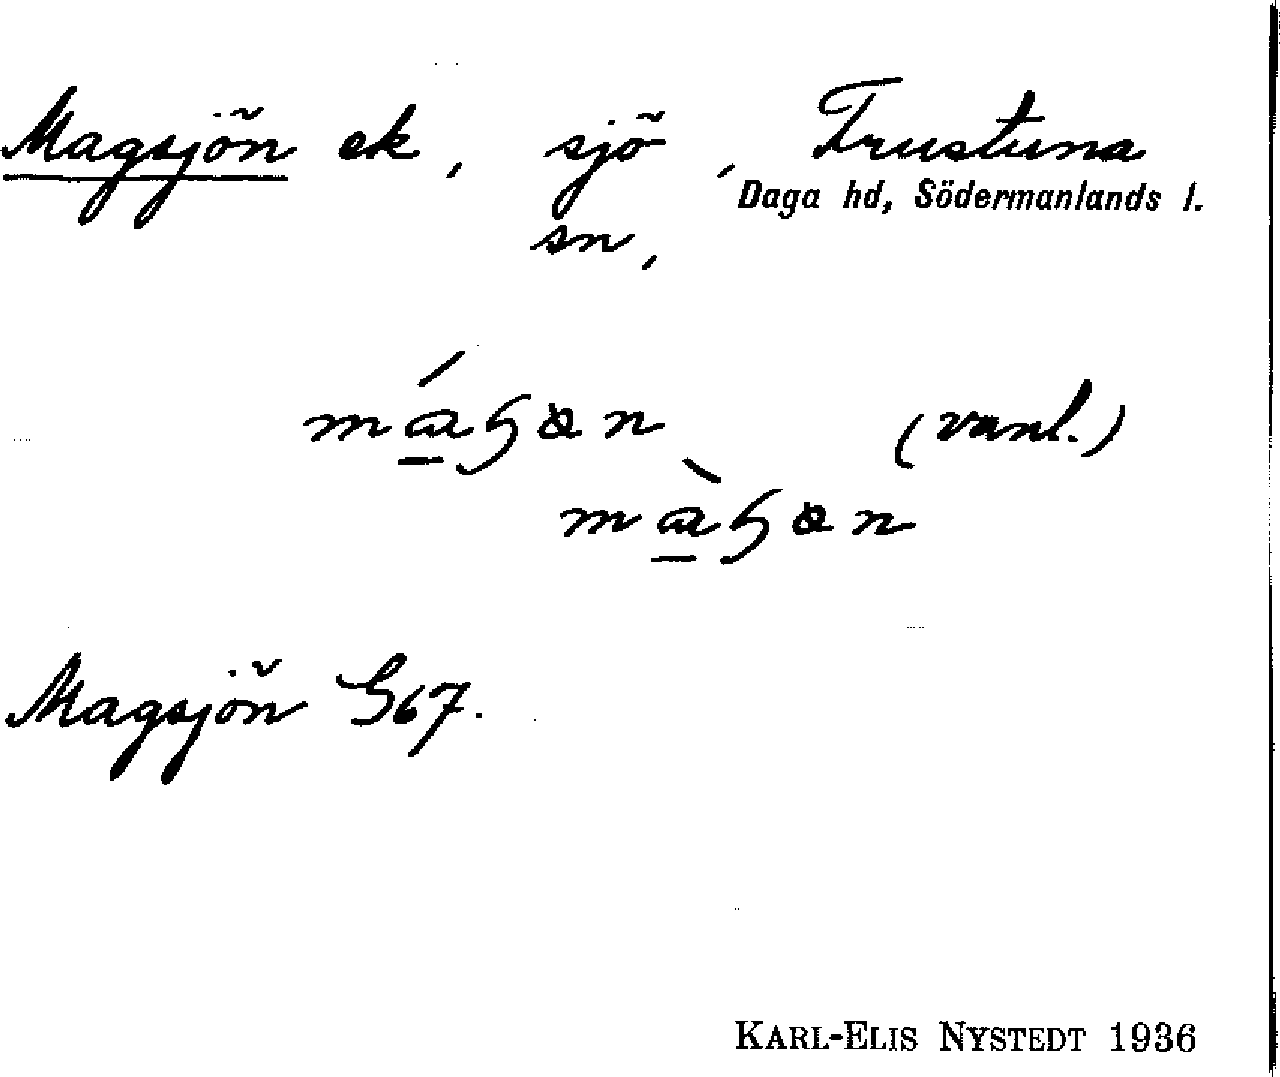 Magsjön ek, sjö, Frustuna
Daga hd, Södermanlands l.
sn,
(vanl.)
Magsjön G67.
KARL-ELIS NYSTEDT 1936